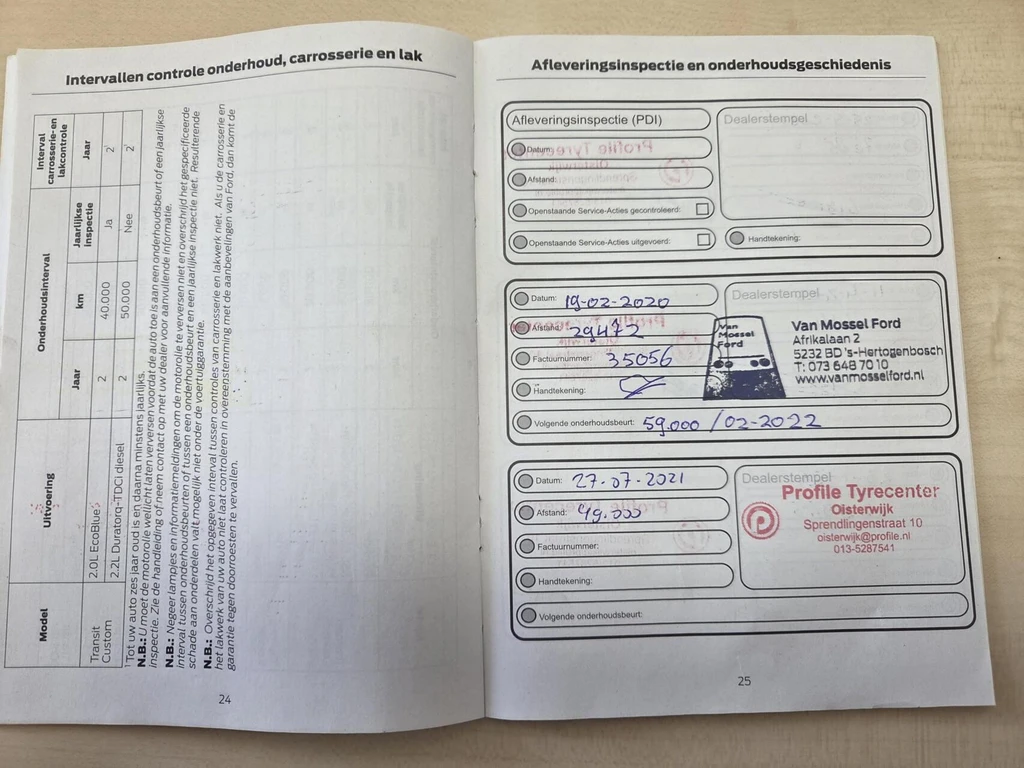 Intervallen controle onderhoud, carrosserie en lak
Model
Uitvoering
Onderhoudsinterval
Interval carrosserie-en lakcontrole
Jaar
km
Jaarlijkse inspectie
Jaar
Transit Custom
2.0L EcoBlue
2
40.000
Ja
2¹
2.2L Duratorq-TDCi diesel
2
50.000
Nee
2¹
¹ Tot uw auto zes jaar oud is en daarna minstens jaarlijks.
N.B.: U moet de motorolie wellicht laten verversen voordat de auto toe is aan een onderhoudsbeurt of een jaarlijkse
inspectie. Zie de handleiding of neem contact op met uw dealer voor aanvullende informatie.
N.B.: Negeer lampjes en informatiemeldingen om de motorolie te verversen niet en overschrijd het gespecificeerde
interval tussen onderhoudsbeurten of tussen een onderhoudsbeurt en een jaarlijkse inspectie niet. Resulterende
schade aan onderdelen valt mogelijk niet onder de voertuiggarantie.
N.B.: Overschrijd het opgegeven interval tussen controles van carrosserie en lakwerk niet. Als u de carrosserie en
het lakwerk van uw auto niet laat controleren in overeenstemming met de aanbevelingen van Ford, dan komt de
garantie tegen doorroesten te vervallen.
24
Afleveringsinspectie en onderhoudsgeschiedenis
Afleveringsinspectie (PDI)
Dealerstempel
Datum:
Afstand:
Openstaande Service-Acties gecontroleerd:
Openstaande Service-Acties uitgevoerd:
Handtekening:
Datum: 19-02-2020
Dealerstempel
Afstand: 29472
Factuurnummer: 35056
Handtekening:
Volgende onderhoudsbeurt: 59.000 / 02-2022
Van
Mossel
Ford
Van Mossel Ford
Afrikalaan 2
5232 BD 's-Hertogenbosch
T: 073 648 70 10
www.vanmosselford.nl
Datum: 27-07-2021
Dealerstempel
Afstand: 49.000
Factuurnummer:
Handtekening:
Volgende onderhoudsbeurt:
Profile Tyrecenter
Oisterwijk
Sprendlingenstraat 10
oisterwijk@profile.nl
013-5287541
25